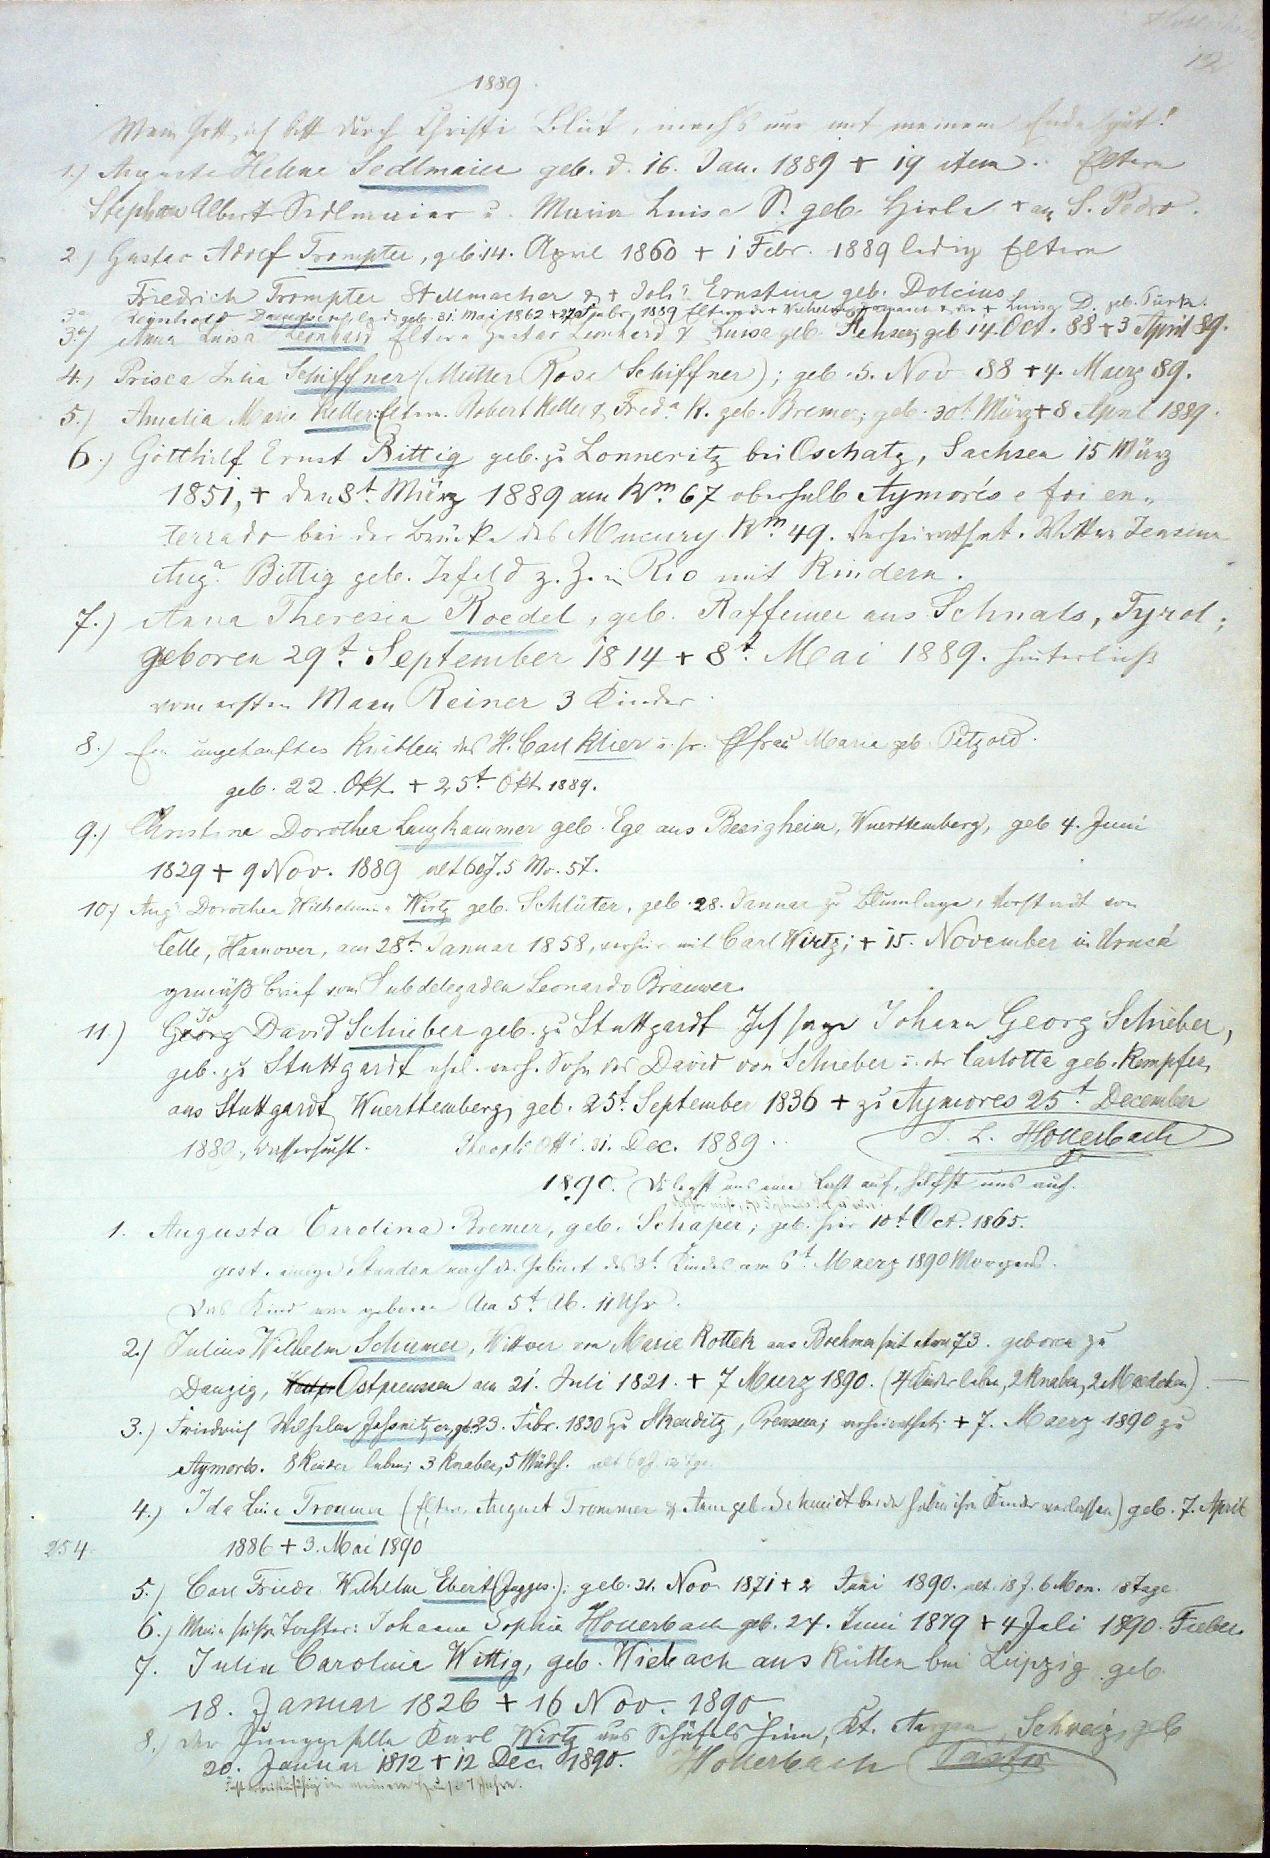 12
1889.
Mein Gott, ich bitt durch Christi Blut, mach's nur mit meinem Ende gut!
1.) Augusta Helene Sedlmaier geb. d. 16. Jan. 1889 + 19 item. Eltern
Stephan Albert Sedlmaier u. Maria Luise S. geb. Hirle + am S. Pedro.
2.) Gustav Adolf Trompter, geb. 14. April 1860 + 1 Febr. 1889 ledig Eltern
Friedrich Trompter Stellmacher & + Joh. Ernstina geb. Dolcius
3a Reynhold ledig geb. 31. Mai 1862 + 27 Febr. 1889 Eltern der + Luise D. geb. Türk.
3b) Anna Luisa Leonhard Eltern Gustav Leonhard & Luisa geb. geb 14. Oct. 88 + 3 April 89.
4.) Prisca Julia Schiffner (Mutter Rosa Schiffner); geb. 5. Nov 88 + 4. Maerz 89.
5.) Amalia Marie Keller Eltern. Robert Keller & Fred.a K. geb. Bremer; geb. 30t März + 8 April 1889.
6.) Gotthilf Ernst Bittig geb. zu Lonneritz bei Oschatz, Sachsen 15 März
1851, + den 8t. März 1889 am Km. 67 oberhalb Aymorés e foi en-
terrado bei der Brücke des Mucury Km. 49. Verheirathet. Wittwe
Aug.a Bittig geb. Isfeld z. Z. in Rio mit Kindern.
7.) Anna Theresia Roedel, geb. Raffeiner aus Schnals, Tyrol;
geboren 29t. September 1814 + 8t. Mai 1889. Hinterließ
vom ersten Mann Reiner 3 Kinder.
8.) Ein ungetauftes Knäblein des H. Carl Klier u. sr. Ehefrau Maria geb. Petzold.
geb. 22. Okt. + 25t. Okt. 1889.
9.) Christine Dorothea Langhammer geb. Ege aus Besigheim, Wuerttemberg, geb 4. Juni
1829 + 9 Nov. 1889 alt 60 J. 5 Mo. 5 T.
10) Aug. Dorothea Wilhelmine Wirtz geb. Schlüter, geb. 28. Januar zu Blumlage, Vorstadt von
Celle, Hannover, am 28t. Januar 1858, verheir. mit Carl Wirtz; + 15. November in Urucú
gemäß Brief vom Subdelegaden Leonardo Brauwer.
11.) Georg David Schieber geb. zu Stuttgardt Ich sage Johann Georg Schieber,
geb. zu Stuttgardt ehel. Sohn des David von Schieber u. der Carlotta geb. Kempfer,
aus Stuttgardt, Wuerttemberg, geb. 25t. September 1836 + zu Aymores 25t. December
1889, Wassersucht. Theophil. Otti. 31. Dec. 1889. J. L. Hollerbach
1890. Du legst uns eine Last auf, hilfst uns auch.
1. Augusta Carolina Bremer, geb. Schaper; geb. hier 10t Oct. 1865.
gest. einige Stunden nach der Geburt des 3t. Kindes am 6t. Maerz 1890 Morgens.
Das Kind war geboren Am 5t Ab. 11 Uhr.
2.) Julius Wilhelm Schirmer, Wittwer von Marie Kottek aus Boehmen seit 73. geboren zu
Danzig, Ostpreussen am 21. Juli 1821. + 7 Maerz 1890. (4 Kinder leben, 2 Knaben, 2 Maedchen)
3.) Friedrich Wilhelm Jessnitzer, geb. 23. Febr. 1830 zu Skeuditz, Preussen; verheirathet; + 7. Maerz 1890 zu
Aymorés. 8 Kinder leben; 3 Knaben, 5 Mädch.
4.) Ida Luise Trommer (Eltern August Trommer & Anna geb. Schmidt beide haben ihre Kinder verlassen) geb. 7. April
254. 1886 + 3. Mai 1890
5.) Carl Friedr. Wilhelm Ebert (Jgges.); geb. 21. Nov. 1871 + 2 Juni 1890. alt. 18 J. 6 Mon. Tage
6.) Meine süße Tochter: Johanna Sophie Hollerbach geb. 24. Juni 1879 + 4 Juli 1890. Fieber.
7. Julia Carolina Wittig, geb. Wiebach aus bei Leipzig geb.
18. Januar 1826 + 16 Nov. 1890.
8.) Der Junggeselle Karl Wirtz aus Kt. Argau, Schweiz, geb
20. Januar 1812 + 12 Dec. 1890. Hollerbach Pastor
in meinem Hause 7 Jahre.